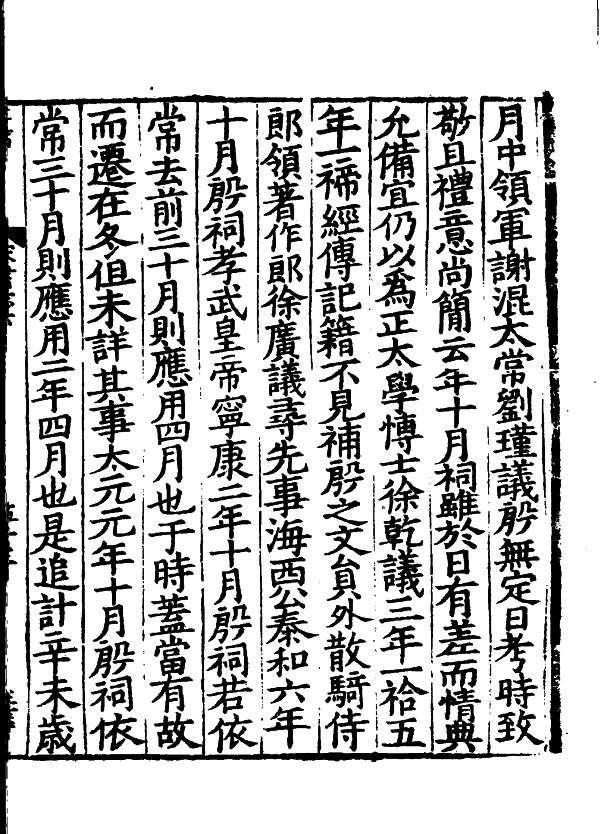 月中領軍謝混太常劉瑾議殷無定日考時致
敬且禮意尚簡云年十月祠雖於日有差而情典
允備宜仍以爲正太學博士徐乾議三年一祫五
年一禘經傳記籍不見補殷之文員外散騎侍
郎領著作郎徐廣議尋先事海西公泰和六年
十月殷祠孝武皇帝寧康二年十月殷祠若依
常去前三十月則應用四月也于時蓋當有故
而遷在冬但未詳其事太元元年十月殷祠依
常三十月則應用二年四月也是追計辛未歳